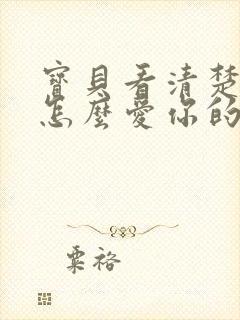 寶貝看清楚
怎麼愛你的
粟裕